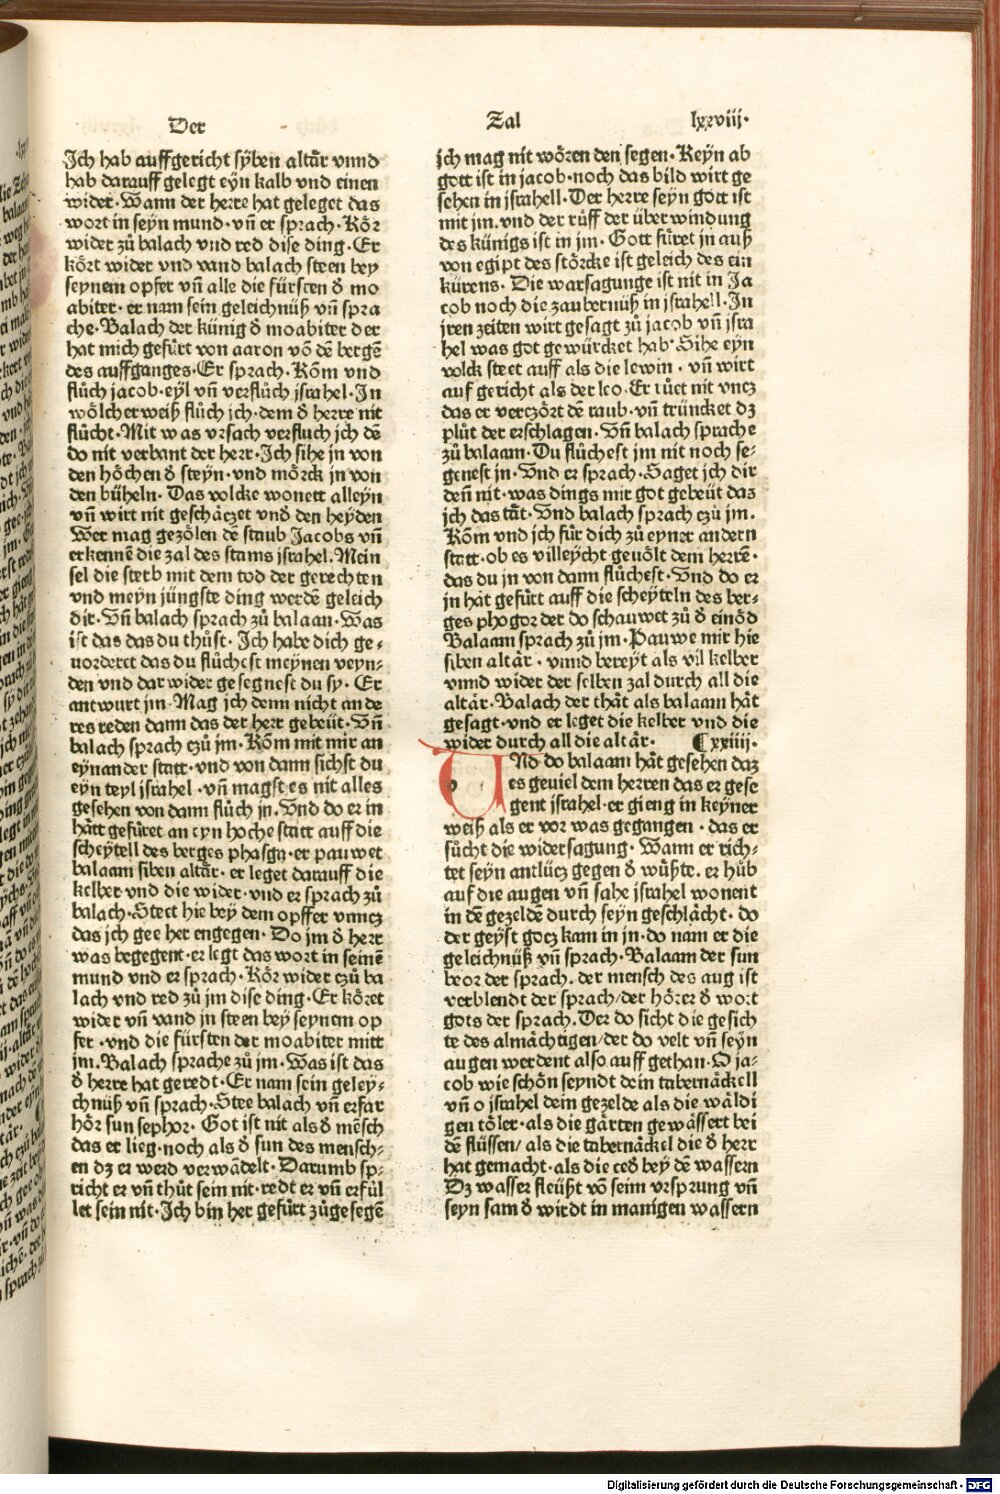 Der
Zal
lxxviij·
Jch hab auffgericht syben altaͤr vnnd
hab darauff gelegt eyn kalb vnd einen
wider· Wann der herre hat geleget das
wort in seyn mund· vn̄ er sprach· Koͤr
wider zuͦ balach vnd red dise ding· Er
koͤrt wider vnd vand balach steen bey
seynem opfer vn̄ alle die fürsten ð mo
abiter· er nam sein geleichnüß vn̄ spra
che· Balach der künig ð moabiter der
hat mich gefuͤrt von aaron vō dē bergē
des auffganges· Er sprach· Kom̄ vnd
fluͦch jacob· eyl vn̄ verfluͦch jsrahel· Jn
woͤlcher weiß fluͦch jch· dem ð herre nit
fluͦcht· Mit was vrsach verfluch jch dē
do nit verbant der herr· Jch sihe jn von
den hoͤchen ð steyn· vnd moͤrck jn von
den büheln· Das volcke wonett alleyn
vn̄ wirt nit geschaͤczet vnð den heyden
Wer mag gezoͤlen dē staub Jacobs vn̄
erkennē die zal des stams jsrahel. Mein
sel die sterb mit dem tod der gerechten
vnd meyn jüngste ding werdē geleich
dir· Vn̄ balach sprach zuͦ balaan· Was
ist das das du thuͦst· Jch habe dich ge⸗
uorderet das du fluͦchest meynen veyn⸗
den vnd dar wider gesegnest du sy· Er
antwurt jm· Mag jch denn nicht ande
res reden dann das der herr gebeüt· Vn̄
balach sprach czuͦ jm· Kom̄ mit mir an
eynander statt· vnd von dann sichst du
eyn teyl jsrahel · vn̄ magst es nit alles
gesehen von dann fluͦch jn· Vnd do er in
haͤtt gefuͤret an eyn hoche statt auff die
scheytell des berges phasga· er pauwet
balaam siben altaͤr· er leget darauff die
kelber vnd die wider· vnd er sprach zuͦ
balach· Steet hie bey dem opffer vnncz
das jch gee her engegen· Do jm ð herr
was begegent· er legt das wort in seinē
mund vnd er sprach· Koͤr wider czuͦ ba
lach vnd red zuͦ jm dise ding· Er koͤret
wider vn̄ vand jn steen bey seynem op
fer · vnd die fürsten der moabiter mitt
jm. Balach sprache zuͦ jm· Was ist das
ð herre hat geredt· Er nam sein geley⸗
chnüß vn̄ sprach· Stee balach vn̄ erfar
hoͤr sun sephor· Got ist nit als ð mēsch
das er lieg· noch als ð sun des mensch⸗
en dz er werd verwādelt· Darumb sp⸗
richt er vn̄ thuͦt sein nit· redt er vn̄ erfül
let sein nit· Jch bin her gefuͤrt zuͦgesegē
jch mag nit woͤren den segen· Keyn ab
gott ist in jacob· noch das bild wirt ge
sehen in jsrahell· Der herre seyn gott ist
mit jm. vnd der ruͦff der überwindung
des künigs ist in jm· Gott fuͤret jn auß
von egipt des stoͤrcke ist geleich des ein
kürens· Die warsagunge ist nit in Ja
cob noch die zaubernüß in jsrahell· Jn
jren zeiten wirt gesagt zuͦ jacob vn̄ jsra
hel was got gewürcket hab· Sihe eyn
volck steet auff als die lewin · vn̄ wirt
auf gericht als der leo· Er ruͦet nit vncz
das er verczoͤrt dē raub· vn̄ trüncket dz
pluͦt der erschlagen· Vn̄ balach sprache
zuͦ balaam· Du fluͦchest jm nit noch se⸗
genest jn· Vnd er sprach· Saget jch dir
den̄ nit· was dings mir got gebeüt das
jch das taͤt· Vnd balach sprach czuͦ jm·
Kom̄ vnd jch fuͤr dich zuͦ eyner andern
statt· ob es villeycht geuoͤlt dem herrē·
das du jn von dann fluͦchest· Vnd do er
jn haͤt gefuͤrt auff die scheyteln des ber⸗
ges phogor der do schauwet zuͦ ð einoͤd
Balaam sprach zuͦ jm· Pauwe mir hie
siben altaͤr · vnnd bereyt als vil kelber
vnnd wider der selben zal durch all die
altaͤr· Balach der thaͤt als balaam haͤt
gesagt· vnd er leget die kelber vnd die
wider durch all die altaͤr· ¶ xxiiij·
VNd do balaam haͤt gesehen daz
es geuiel dem herren das er gese
gent jsrahel· er gieng in keyner
weiß als er vor was gegangen · das er
suͦcht die widersagung· Wann er rich⸗
tet seyn antlücz gegen ð wuͤßte. er huͦb
auf die augen vn̄ sahe jsrahel wonent
in dē gezeldē durch seyn geschlaͤcht· do
der geyst gocz kam in jn· do nam er die
geleichnüß vn̄ sprach· Balaam der sun
beor der sprach. der mensch des aug ist
verblendt der sprach/ der hoͤrer ð wort
gots der sprach. Der do sicht die gesich
te des almaͤchtigen/ der do velt vn̄ seyn
augen werdent also auff gethan· O ja⸗
cob wie schoͤn seyndt dein tabernaͤckell
vn̄ o jsrahel dein gezelde als die waͤldi
gen toͤler· als die gaͤrten gewaͤssert bei
dē flüssen/ als die tabernaͤckel die ð herr
hat gemacht· als die ceð bey dē wassern
Dz wasser fleüßt vō seim vrsprung vn̄
seyn sam ð wirdt in manigen wassern
Digitalisierung gefördert durch die Deutsche Forschungsgemeinschaft - DFG